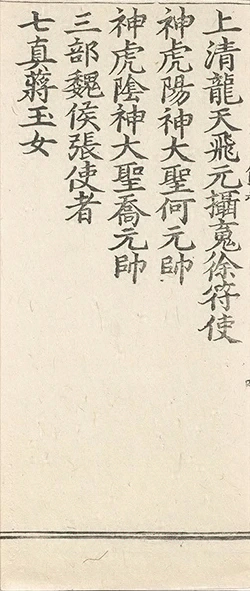 上清龍天飛元攝䰟徐符使
神虎陽神大聖何元帥
神虎陰神大聖喬元帥
三部魏侯張使者
七真蔣玉女